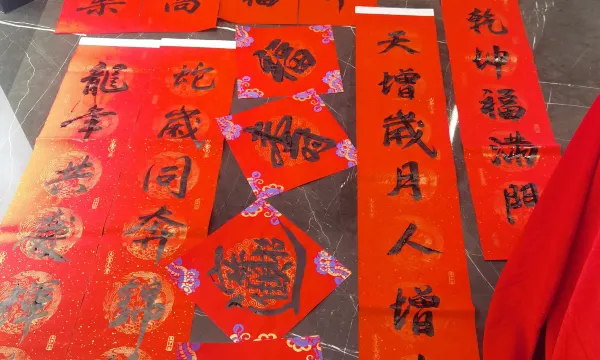 龍年共慶
蛇歲同奔錦
福
壽
天增歲月人增
乾坤福滿門